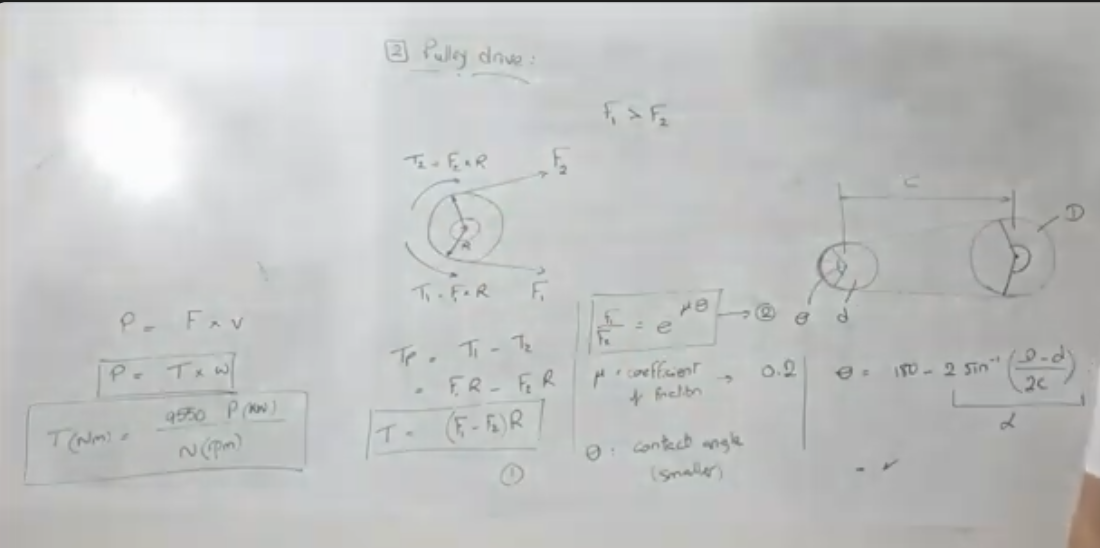 2 Pulley drive:
F₁ > F₂
T₂ = F₂ × R
F₂
R
T₁ = F₁ × R
F₁
C
D
θ
d
P = F × v
P = T × w
T(Nm) = 9550 P(KW)
N(rpm)
Tp = T₁ - T₂
= F₁R - F₂R
T = (F₁ - F₂)R
①
F₁/F₂ = e^μθ → ②
μ = coefficient of friction → 0.2
θ : contact angle
(smaller)
θ = 180 - 2 sin⁻¹ (D-d/2C)
α